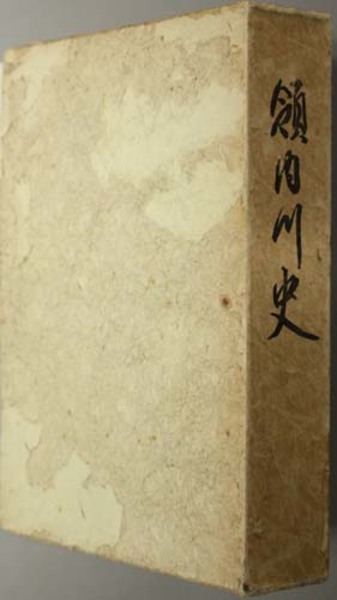 領内川史